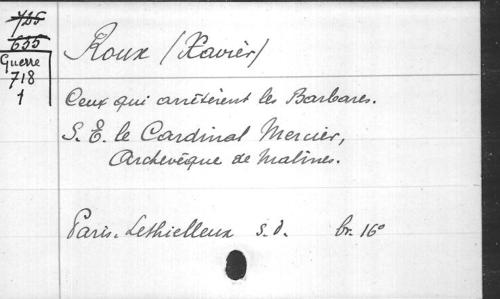 655
Guerre
718
1
Roux (Xavier)
Ceux qui arrêtèrent les Barbares.
S. E. le Cardinal Mercier,
Archevêque de Malines.
Paris. Lethielleux s. d. br. 16°